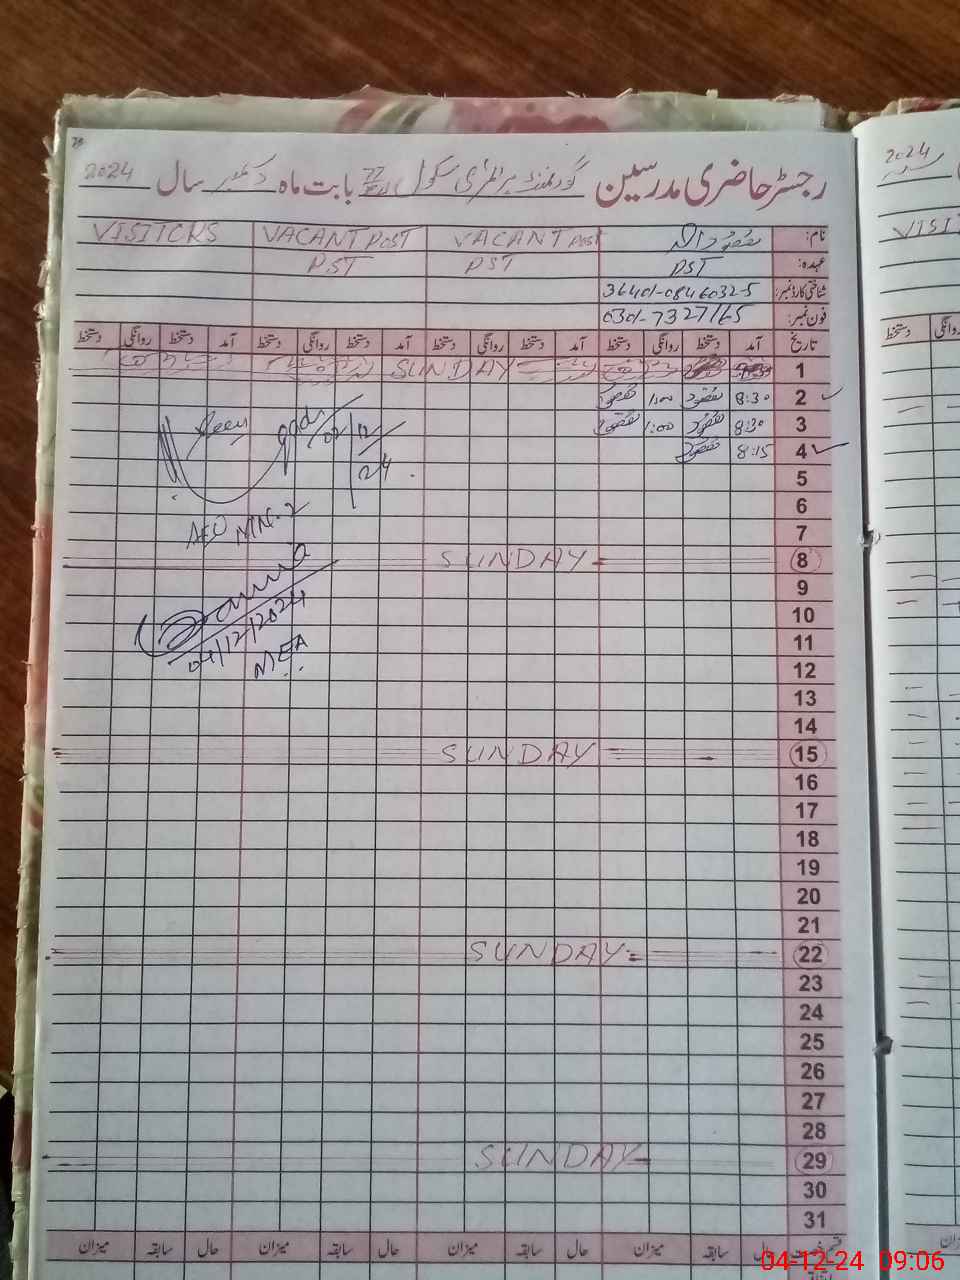 رجسٹر حاضری مدرسین گورنمنٹ پرائمری سکول 77 بابت ماہ دسمبر سال 2024
نام: مقصود اللہ VACANT POST VACANT POST VISITORS
عہدہ: PST PST PST
شناختی کارڈ نمبر: 36401-0846032-5
فون نمبر: 0301-7327165
تاریخ آمد دستخط روانگی دستخط آمد دستخط روانگی دستخط آمد دستخط روانگی دستخط
1 SUNDAY
2 8:30 مقصود 1:00 مقصود
3 8:30 مقصود 1:00 مقصود
4 8:15 مقصود
02/12/24
5
6
AEO MN-2
7
8 SUNDAY
9
10
04/12/2024
11
MEA
12
13
14
15 SUNDAY
16
17
18
19
20
21
22 SUNDAY
23
24
25
26
27
28
29 SUNDAY
30
31
حال سابقہ میزان حال سابقہ میزان حال سابقہ میزان حال سابقہ میزان
2024
04-12-24 09:06